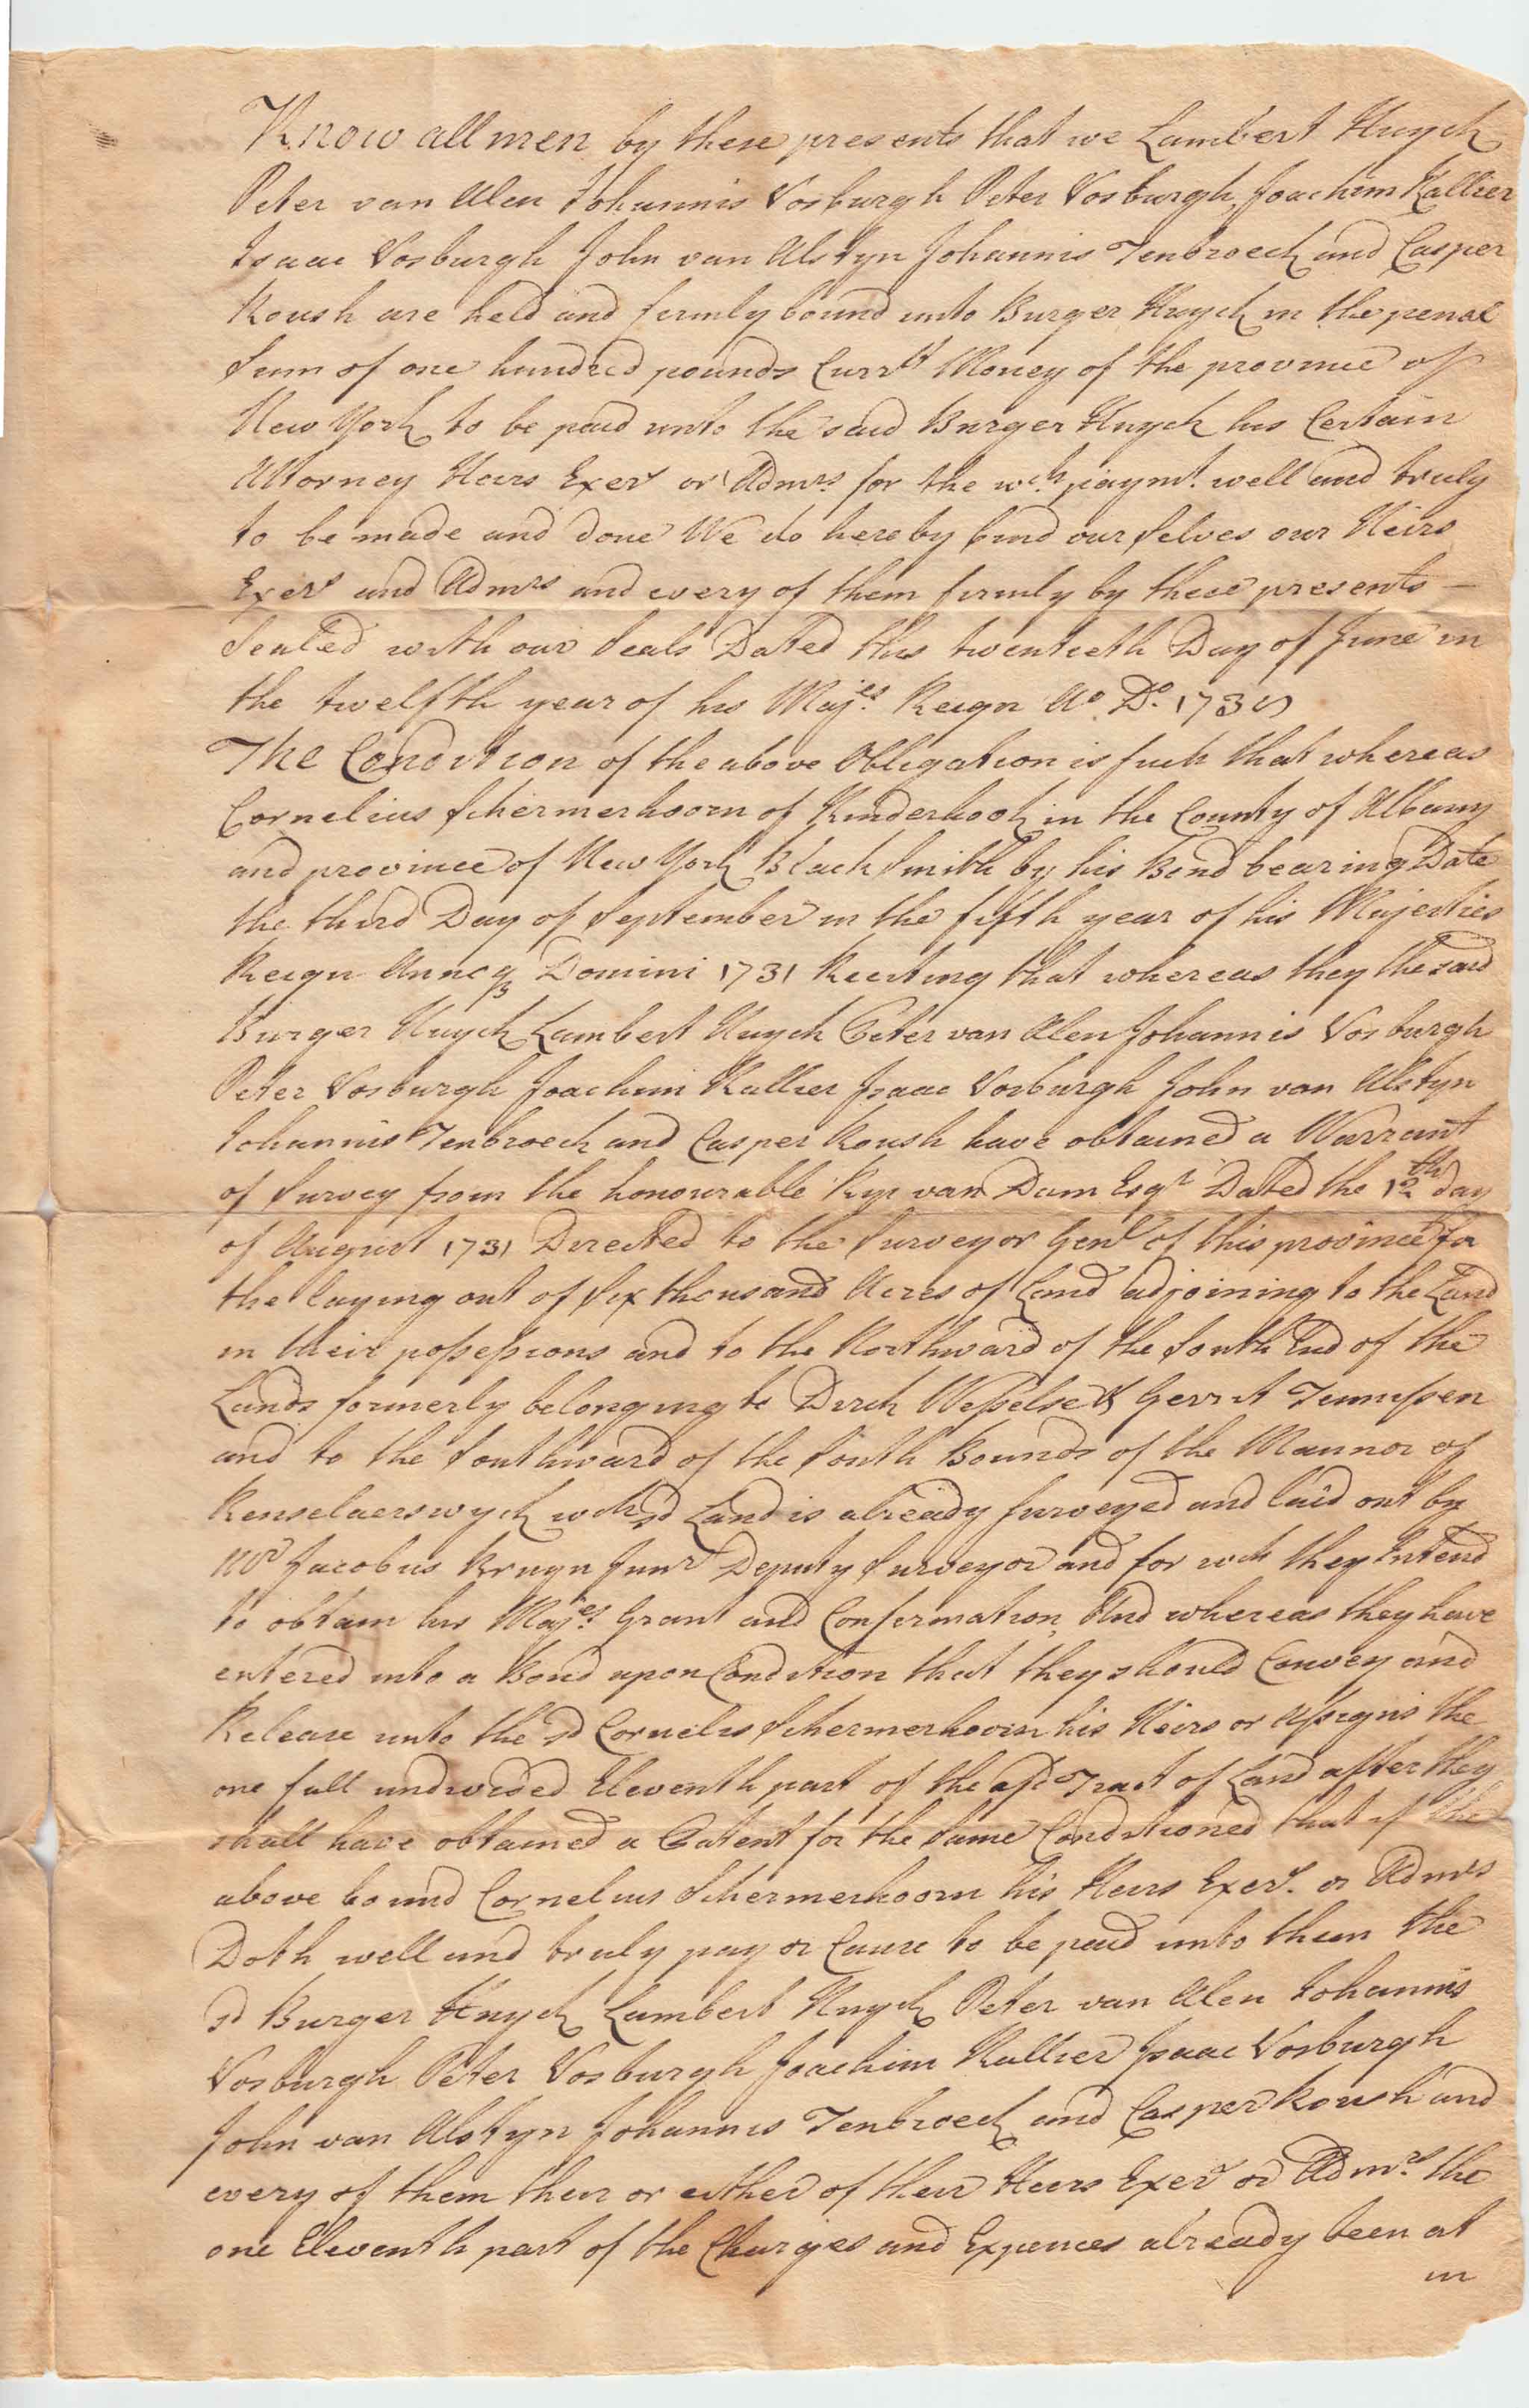 Know all men by these presents that we Lambert Huyck
Peter van Alen Johannis Vosburgh Peter Vosburgh Joachim Kallier
Isaac Vosburgh John van Alstyn Johannis Tenbroeck and Casper
Roush are held and firmly bound unto Burger Huyck in the penal
Sum of one hundred pounds Currt Money of the province of
New York to be paid unto the said Burger Huyck his Certain
Attorney Heirs Exers or Admrs for the wch paymt. well and truly
to be made and done We do hereby bind our Selves our Heirs
Exers and Admrs and every of them firmly by these presents —
Sealed with our Seals Dated this twentieth Day of June in
the twelfth year of his Majes. Reign Ao Do. 1738
The Condition of the above Obligation is such that whereas
Cornelius Schermerhoorn of Kinderhook in the County of Albany
and province of New York Black Smith by his Bond bearing Date
the third Day of September in the fifth year of his Majesties
Reign Annoq Domini 1731 Reciting that whereas they the said
Burger Huyck Lambert Huyck Peter van Alen Johannis Vosburgh
Peter Vosburgh Joachim Kallier Isaac Vosburgh John van Alstyn
Johannis Tenbroeck and Casper Roush have obtained a Warrant
of Survey from the honourable Rip van Dam Esqr Dated the 12th day
of August 1731 Directed to the Surveyor Genl of this province for
the laying out of Six thousand Acres of Land adjoining to the Land
in their possessions and to the Northward of the South End of the
Lands formerly belonging to Dirck Wesselse & Gerrit Teunissen
and to the Southward of the South Bounds of the Mannor of
Renselaerswyck wch sd Land is already surveyed and laid out by
Mr Jacobus Bruyn Junr Deputy Surveyor and for wch they Intend
to obtain his Majes. Grant and Confirmation, And whereas they have
entered into a Bond upon Condition that they should Convey and
Release unto the sd Cornelis Schermerhoorn his Heirs or Assigns the
one full undivided Eleventh part of the afsd Tract of Land after they
shall have obtained a Patent for the Same Conditioned that if the
above bound Cornelius Schermerhoorn his Heirs Exers. or Admrs
Doth well and truly pay or Cause to be paid unto them the
sd Burger Huyck Lambert Huyck Peter van Alen Johannis
Vosburgh Peter Vosburgh Joachim Kallier Isaac Vosburgh
John van Alstyn Johannis Tenbroeck and Casper Roush and
every of them their or either of their Heirs Exers or Admrs. the
one Eleventh part of the Charges and Expences already been at
in